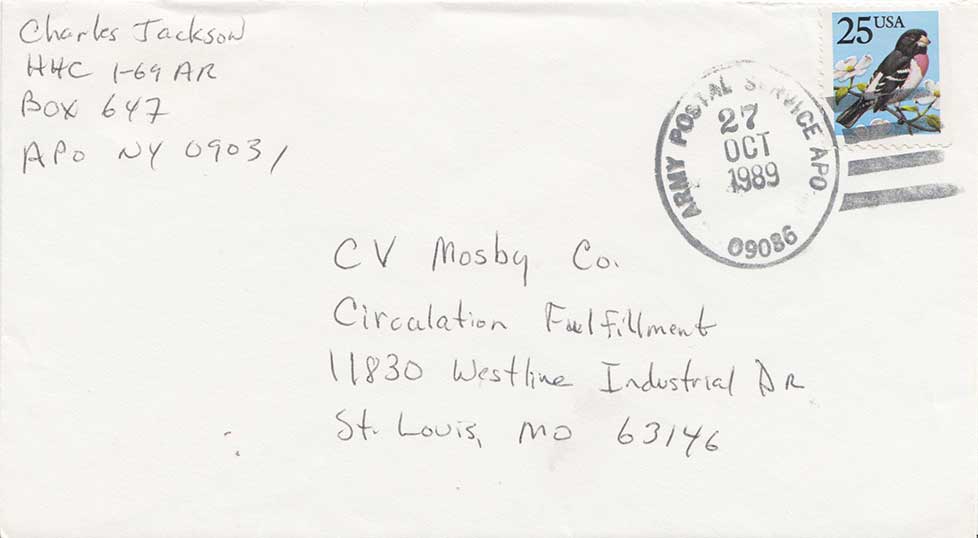 Charles Jackson
HHC 1-69 AR
Box 647
APO NY 09031
25 USA
ARMY POSTAL SERVICE APO
27
OCT
1989
09086
CV Mosby Co.
Circulation Fulfillment
11830 Westline Industrial DR
St. Louis, MO 63146